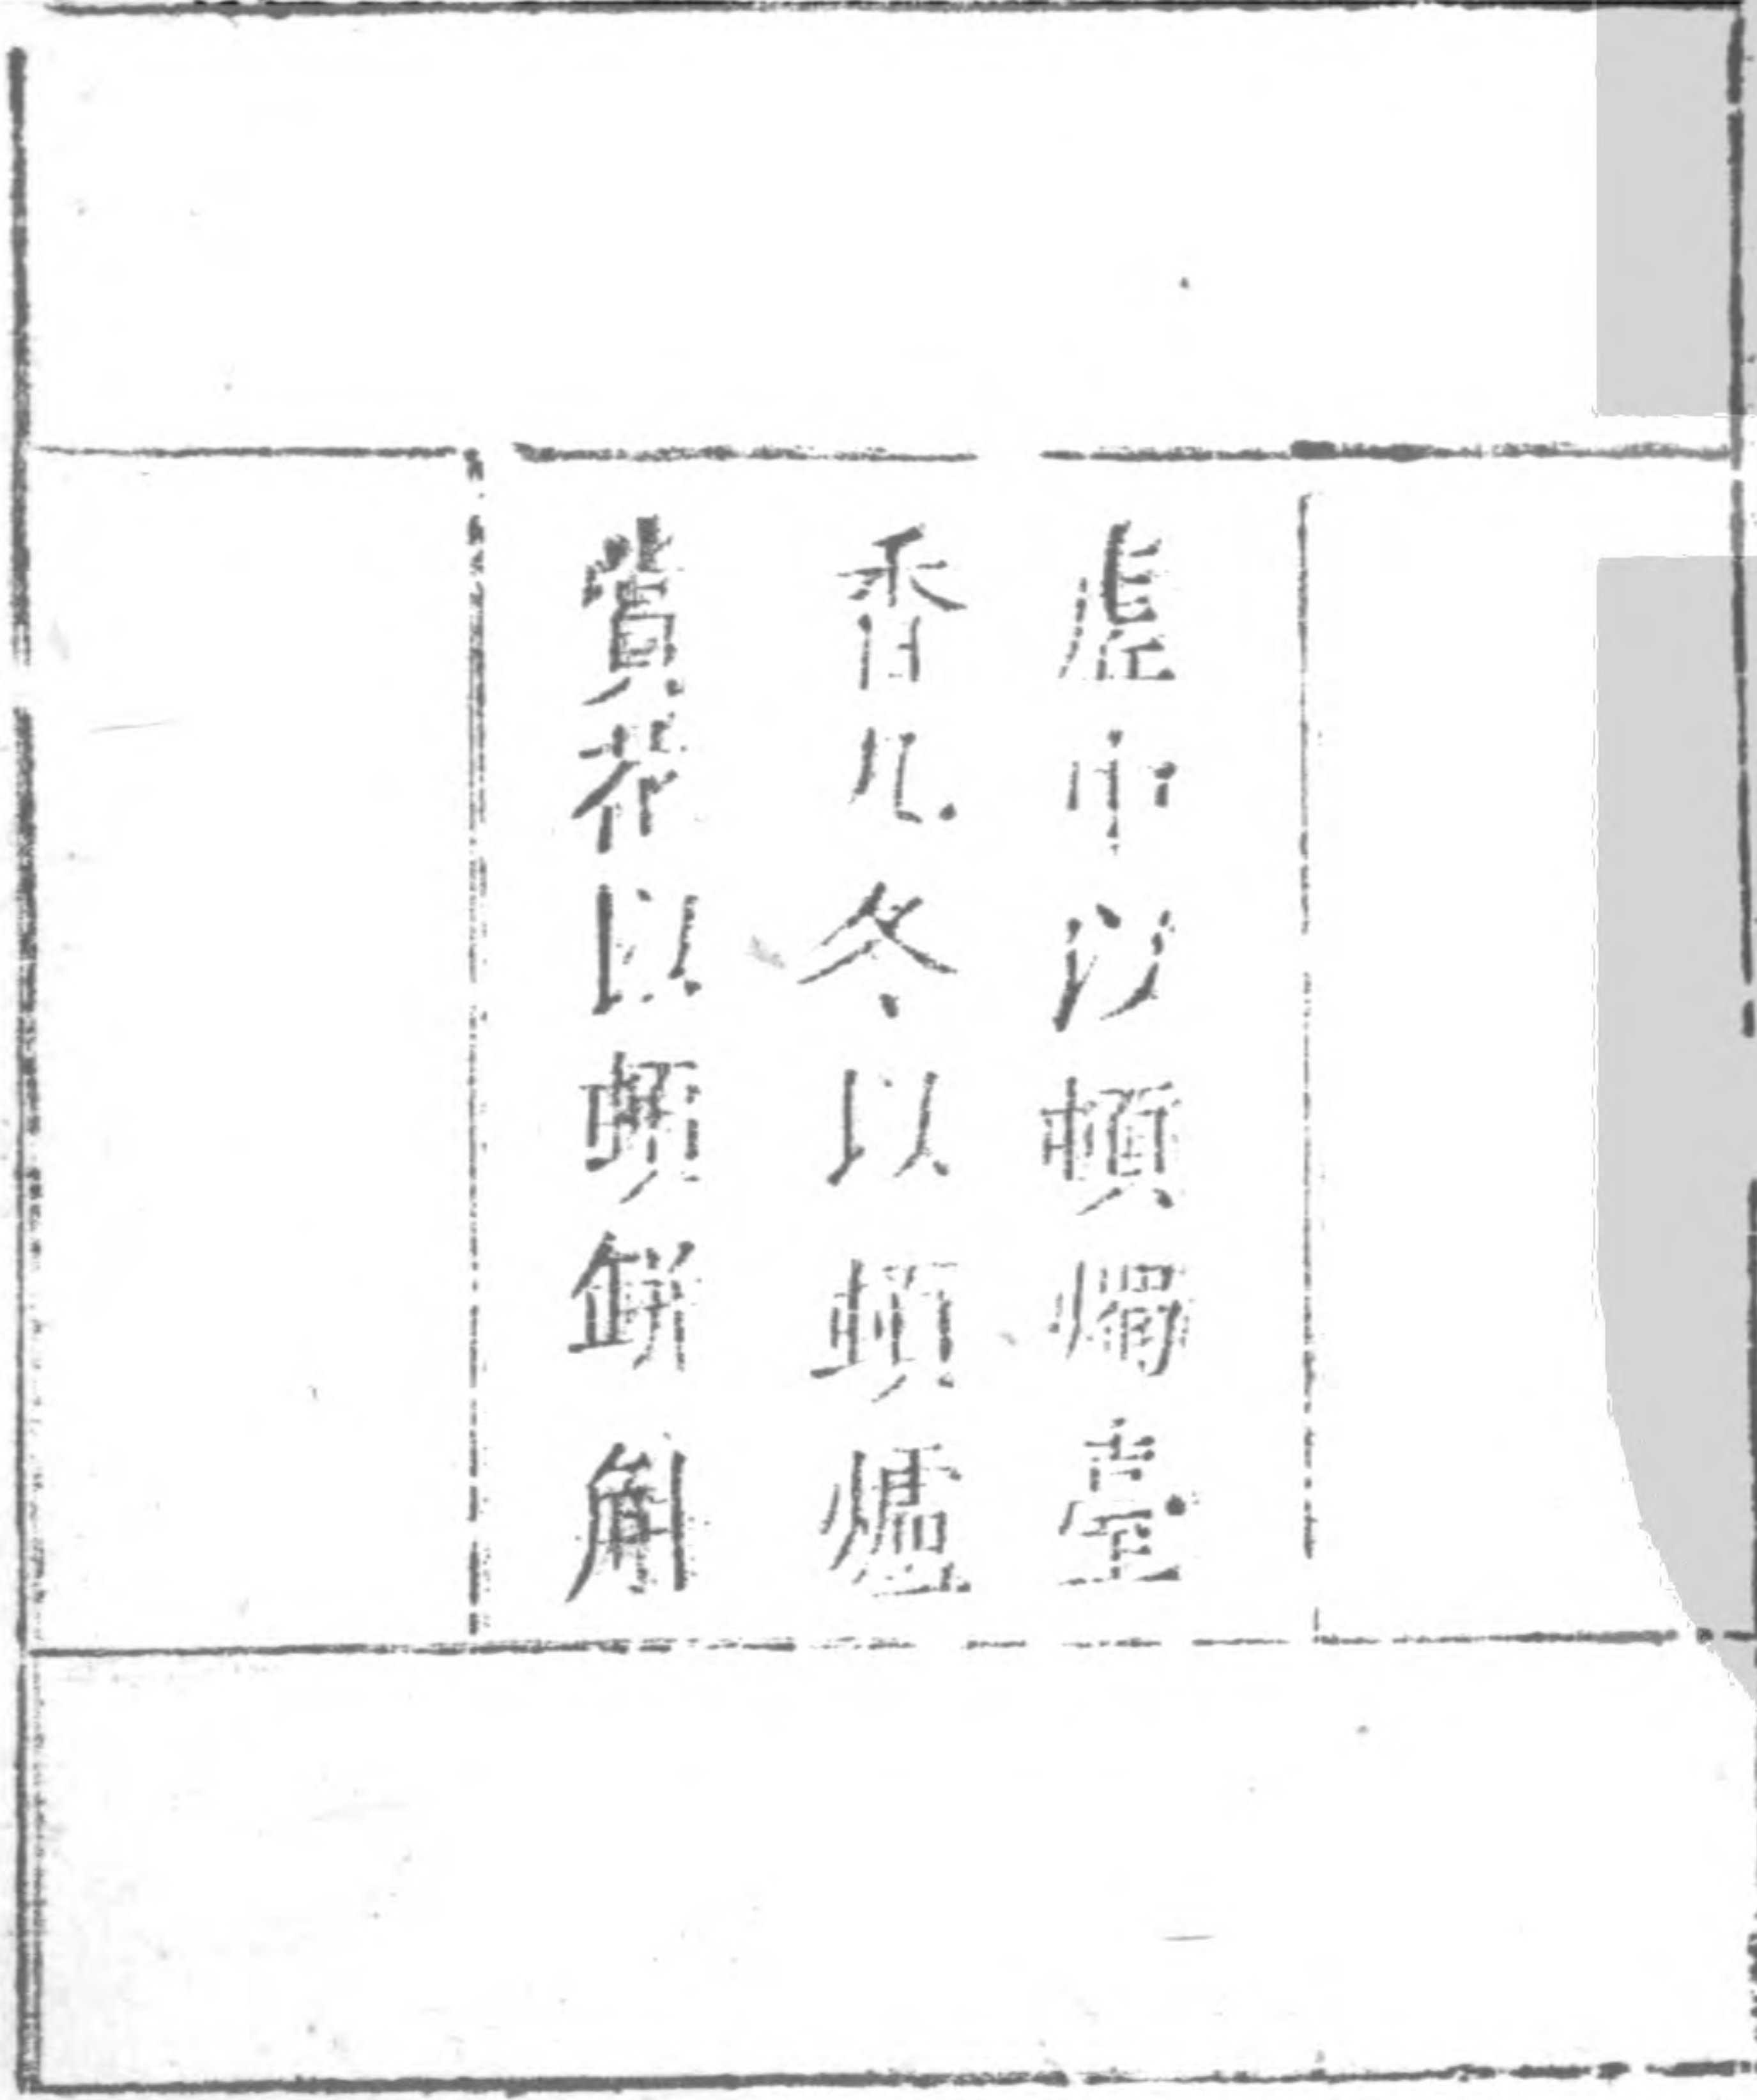 虛中以頓燭臺
香几冬以頓爐
賞花以頓缾斛